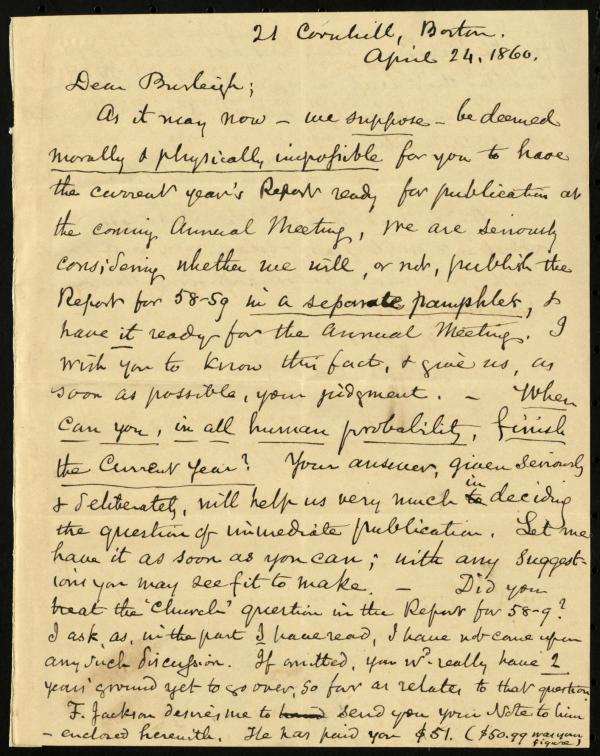 21 Cornhill, Boston.
April 24. 1860.
Dear Burleigh;
As it may now – we suppose – be deemed
morally & physically impossible for you to have
the current year's Report ready for publication at
the coming Annual Meeting, we are seriously
considering whether we will, or not, publish the
Report for 58-59 in a separate pamphlet, &
have it ready for the Annual Meeting. I
wish you to know this fact, & give us, as
soon as possible, your judgment. – When
can you, in all human probability, finish
the Current year? Your answer, given seriously
& deliberately, will help us very much in deciding
the question of immediate publication. Let me
have it as soon as you can; with any suggest-
ions you may see fit to make. – Did you
treat the "Church" question in the Report for 58-9?
I ask, as, in the part I have read, I have not come upon
any such discussion. If omitted, you wd. really have 2
years' ground yet to go over, so far as relates to that question.
F. Jackson desires me to send you your Note to him
– enclosed herewith. He has paid you $51. ($50.99 was your
figure)